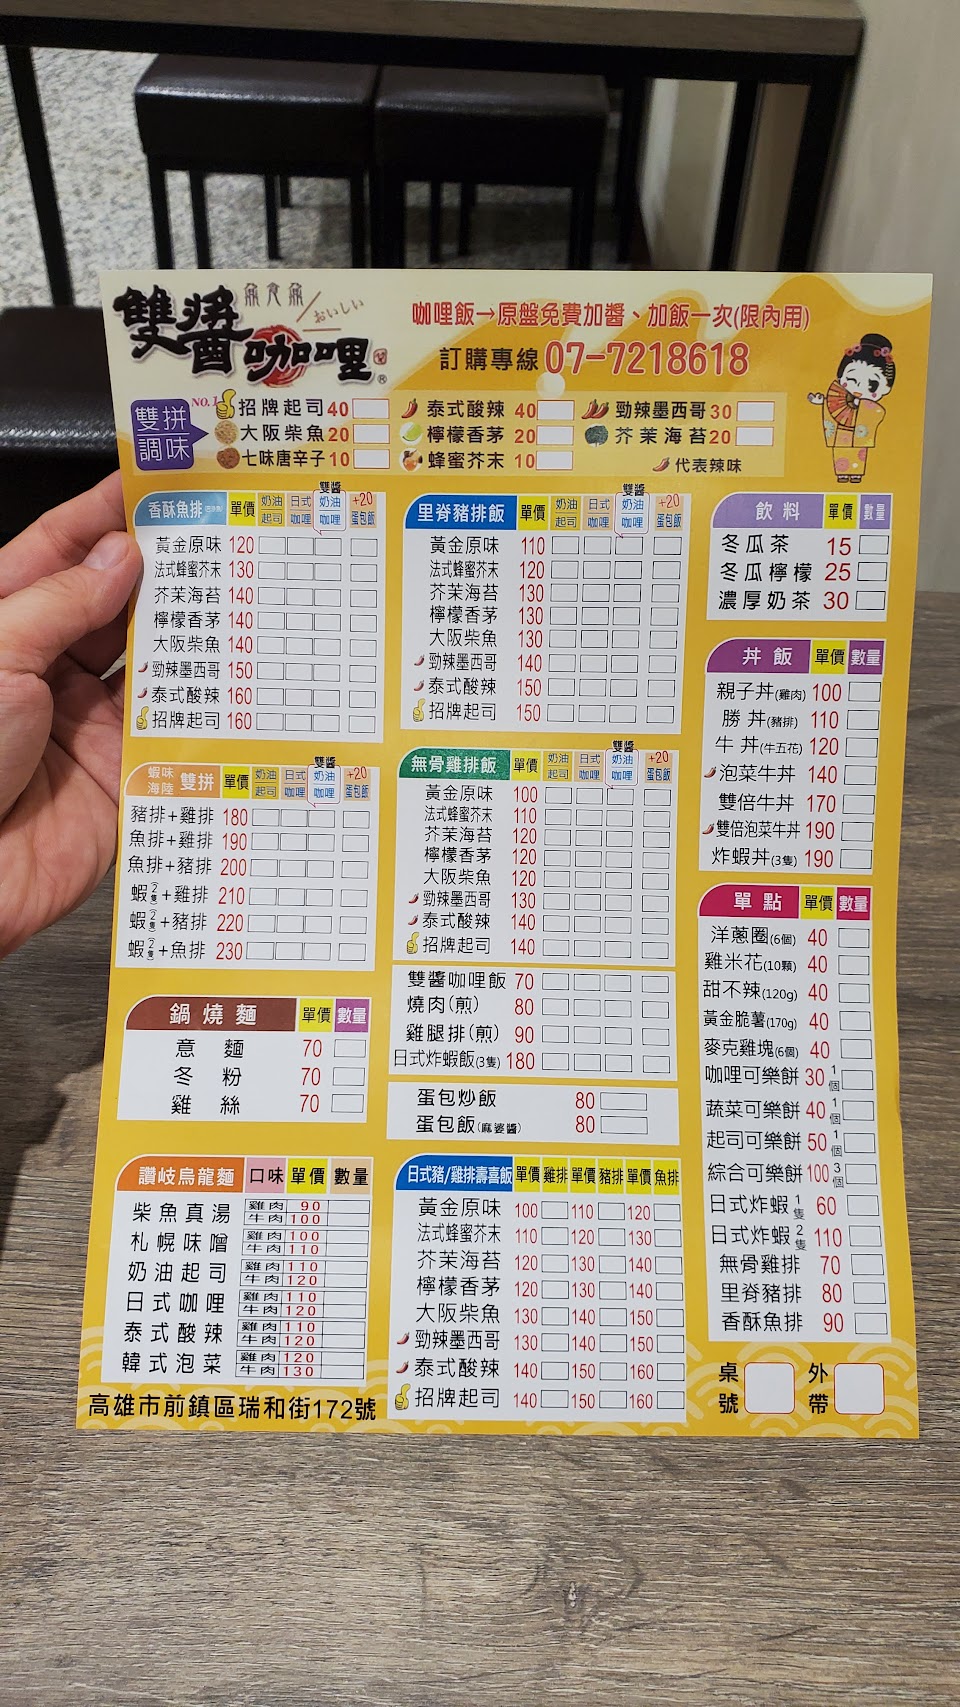 雙醬咖哩
おいしい
®
咖哩飯→原盤免費加醬、加飯一次(限內用)
訂購專線07-7218618
雙拼調味
NO.1 招牌起司 40 泰式酸辣 40 勁辣墨西哥 30
大阪柴魚 20 檸檬香茅 20 芥茉海苔 20
七味唐辛子 10 蜂蜜芥末 10 代表辣味
香酥魚排 單價 奶油起司 日式咖哩 雙醬 奶油咖哩 +20蛋包飯
黃金原味 120
法式蜂蜜芥末 130
芥茉海苔 140
檸檬香茅 140
大阪柴魚 140
勁辣墨西哥 150
泰式酸辣 160
招牌起司 160
蝦味海陸 雙拼 單價 奶油起司 日式咖哩 雙醬 奶油咖哩 +20蛋包飯
豬排+雞排 180
魚排+雞排 190
魚排+豬排 200
蝦(2隻)+雞排 210
蝦(2隻)+豬排 220
蝦(2隻)+魚排 230
鍋燒麵 單價 數量
意麵 70
冬粉 70
雞絲 70
讚岐烏龍麵 口味 單價 數量
柴魚真湯 雞肉 90
牛肉 100
札幌味噌 雞肉 100
牛肉 110
奶油起司 雞肉 110
牛肉 120
日式咖哩 雞肉 110
牛肉 120
泰式酸辣 雞肉 110
牛肉 120
韓式泡菜 雞肉 120
牛肉 130
高雄市前鎮區瑞和街172號
里脊豬排飯 單價 奶油起司 日式咖哩 雙醬 奶油咖哩 +20蛋包飯
黃金原味 110
法式蜂蜜芥末 120
芥茉海苔 130
檸檬香茅 130
大阪柴魚 130
勁辣墨西哥 140
泰式酸辣 150
招牌起司 150
無骨雞排飯 單價 奶油起司 日式咖哩 雙醬 奶油咖哩 +20蛋包飯
黃金原味 100
法式蜂蜜芥末 110
芥茉海苔 120
檸檬香茅 120
大阪柴魚 120
勁辣墨西哥 130
泰式酸辣 140
招牌起司 140
雙醬咖哩飯 70
燒肉(煎) 80
雞腿排(煎) 90
日式炸蝦飯(3隻) 180
蛋包炒飯 80
蛋包飯(麻婆醬) 80
日式豬/雞排壽喜飯 單價 雞排 單價 豬排 單價 魚排
黃金原味 100 110 120
法式蜂蜜芥末 110 120 130
芥茉海苔 120 130 140
檸檬香茅 120 130 140
大阪柴魚 130 140 150
勁辣墨西哥 130 140 150
泰式酸辣 140 150 160
招牌起司 140 150 160
飲料 單價 數量
冬瓜茶 15
冬瓜檸檬 25
濃厚奶茶 30
丼飯 單價 數量
親子丼(雞肉) 100
勝丼(豬排) 110
牛丼(牛五花) 120
泡菜牛丼 140
雙倍牛丼 170
雙倍泡菜牛丼 190
炸蝦丼(3隻) 190
單點 單價 數量
洋蔥圈(6個) 40
雞米花(10顆) 40
甜不辣(120g) 40
黃金脆薯(170g) 40
麥克雞塊(6個) 40
咖哩可樂餅 30 1個
蔬菜可樂餅 40 1個
起司可樂餅 50 1個
綜合可樂餅 100 3個
日式炸蝦 1隻 60
日式炸蝦 2隻 110
無骨雞排 70
里脊豬排 80
香酥魚排 90
桌號 外帶